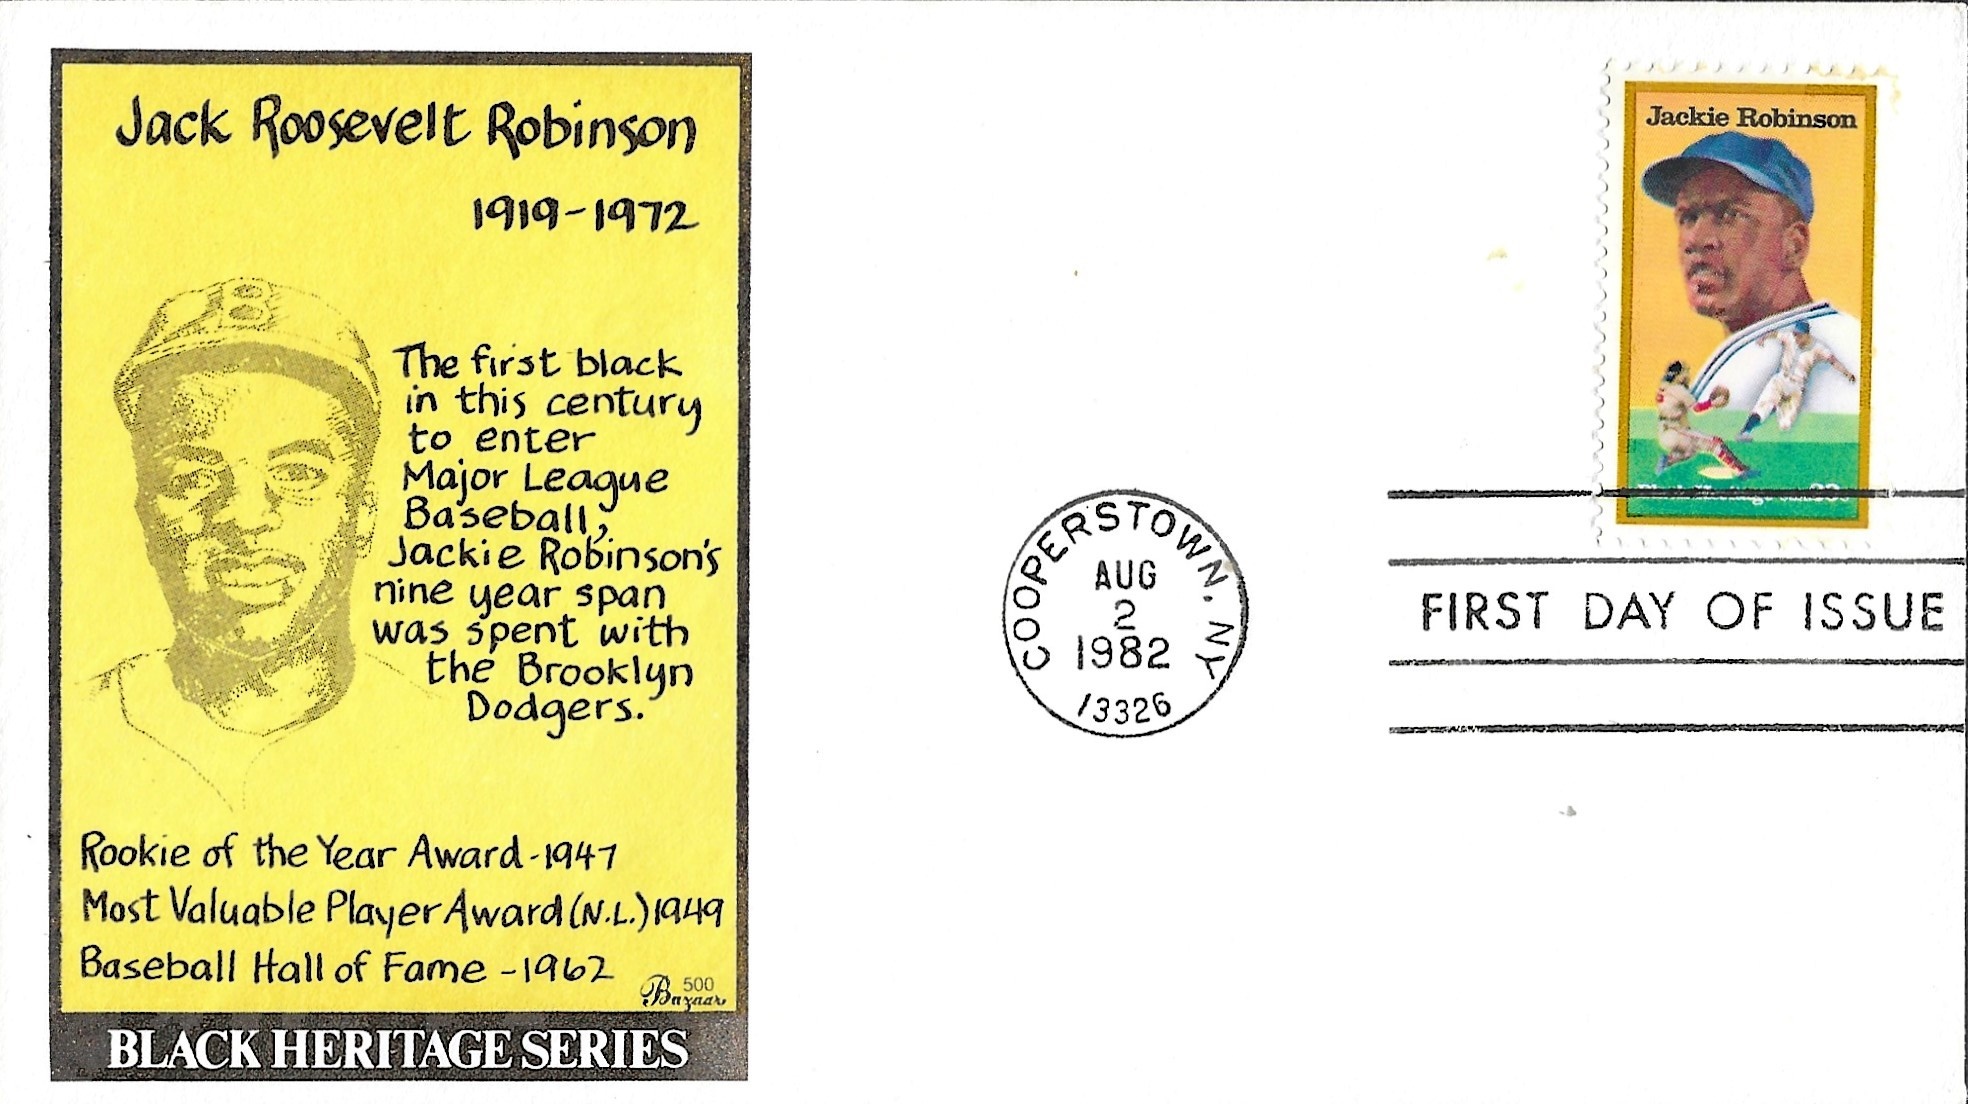 Jack Roosevelt Robinson
1919-1972
The first black
in this century
to enter
Major League
Baseball,
Jackie Robinson's
nine year span
was spent with
the Brooklyn
Dodgers.
Rookie of the Year Award -1947
Most Valuable Player Award (N.L.) 1949
Baseball Hall of Fame -1962
500
Bazaar
BLACK HERITAGE SERIES
B
COOPERSTOWN, NY
AUG
2
1982
13326
Jackie Robinson
FIRST DAY OF ISSUE